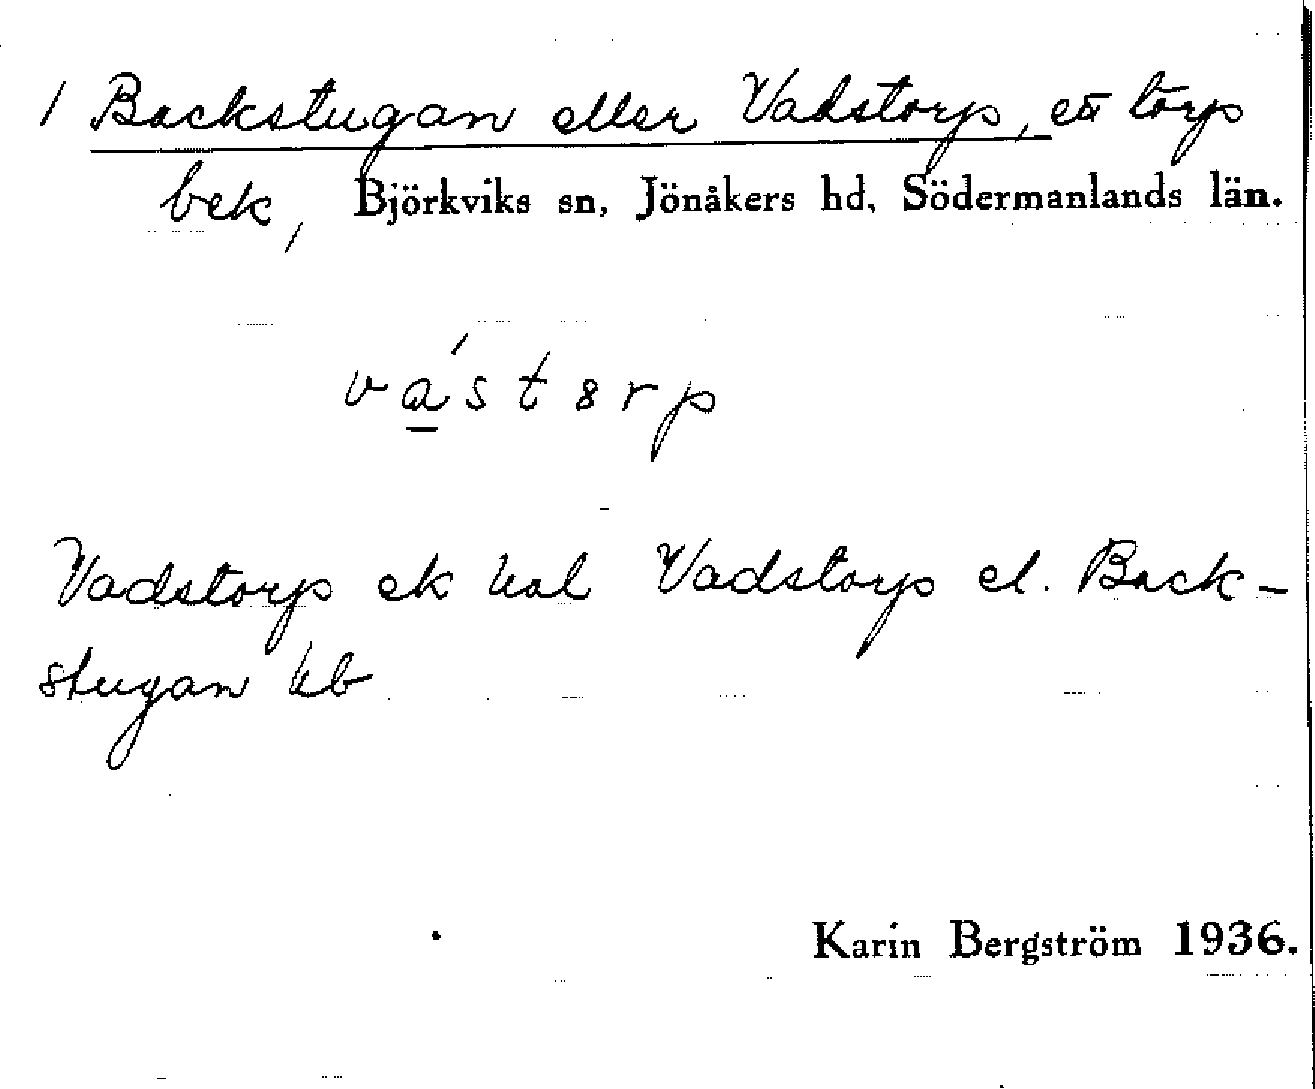 / Backstugan eller Vadstorp, ett torp
bek, Björkviks sn, Jönåkers hd, Södermanlands län.
vá̲storp
Vadstorp ek Vadstorp el. Back-
stugan hb
Karin Bergström 1936.